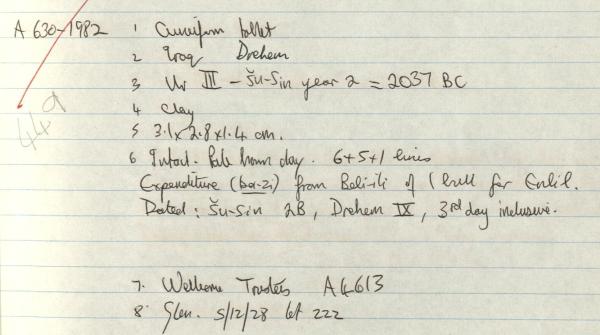 A 630-1982 1 Cuneiform tablet
2 Iraq Drehem
3 Ur III - Šu-Sin year 2 = 2037 BC
4 Clay
449
5 3.1 x 2.8 x 1.4 cm.
6 Intact. Pale brown clay. 6+5+1 lines
Expenditure (ba-zi) from Beli-ili of 1 bull for Enlil.
Dated: Šu-Sin 2B, Drehem IX, 3rd day inclusive.
7. Wellcome Trustees A4613
8. Glen. 5/12/28 lot 222